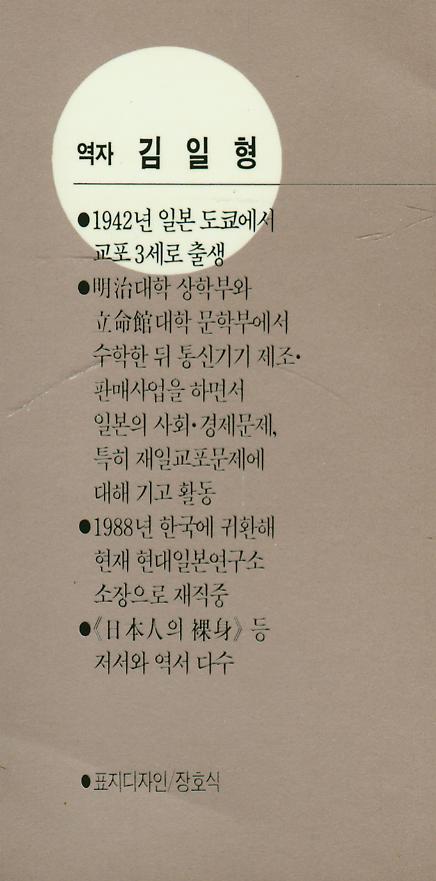 역자 김 일 형
●1942년 일본 도쿄에서
교포 3세로 출생
●明治대학 상학부와
立命館대학 문학부에서
수학한 뒤 통신기기 제조·
판매사업을 하면서
일본의 사회·경제문제,
특히 재일교포문제에
대해 기고 활동
●1988년 한국에 귀환해
현재 현대일본연구소
소장으로 재직중
●《日本人의 裸身》 등
저서와 역서 다수
●표지디자인/장호식